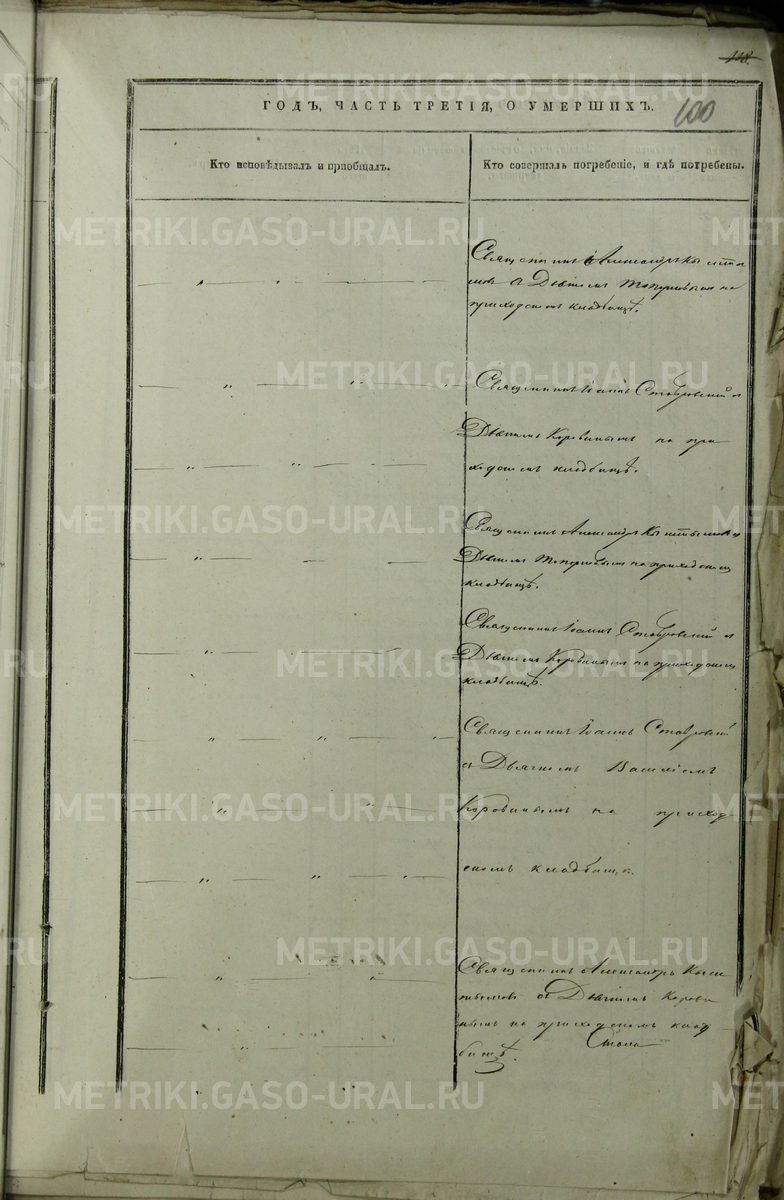 118
100
ГОДЪ, ЧАСТЬ ТРЕТІЯ, О УМЕРШИХЪ.
Кто исповѣдывалъ и пріобщалъ.
Кто совершалъ погребеніе, и гдѣ погребены.
Священникъ Александръ
съ Дьячкомъ на
приходскомъ кладбищѣ.
Священникъ Іоаннъ Ставровскій съ
Дьячкомъ Коровинымъ на при
ходскомъ кладбищѣ.
Священникъ Александръ
Дьячкомъ на приходскомъ
кладбищѣ.
Священникъ Іоаннъ Ставровскій съ
Дьячкомъ Коровинымъ на приходскомъ
кладбищѣ.
Священникъ Іоаннъ Ставровскій
съ Дьячкомъ Василіемъ
Коровинымъ на приход
скомъ кладбищѣ.
Священникъ Александръ
съ Дьячкомъ Корови
нымъ на приходскомъ клад
бищѣ.
METRIKI.GASO-URAL.RU